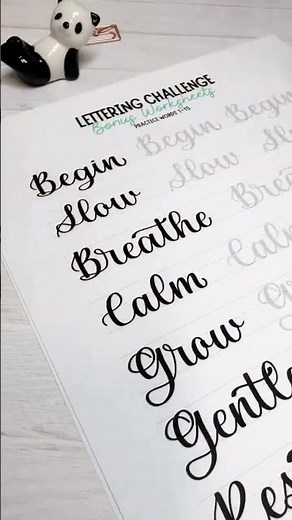 LETTERING CHALLENGE
Bonus Worksheets
PRACTICE WORDS 1-15
Begin Begin Begin
Slow Slow Slow
Breathe Brea
Calm Calm
Grow Gr
Gentle
Resi